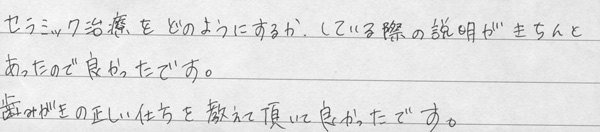 セラミック治療をどのようにするか、している際の説明がきちんと
あったので良かったです。
歯みがきの正しい仕方を教えて頂いて良かったです。